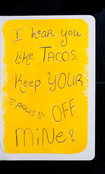 I hear you
like TACOS.
Keep YOUR
"PAWS" OFF
MiNe!